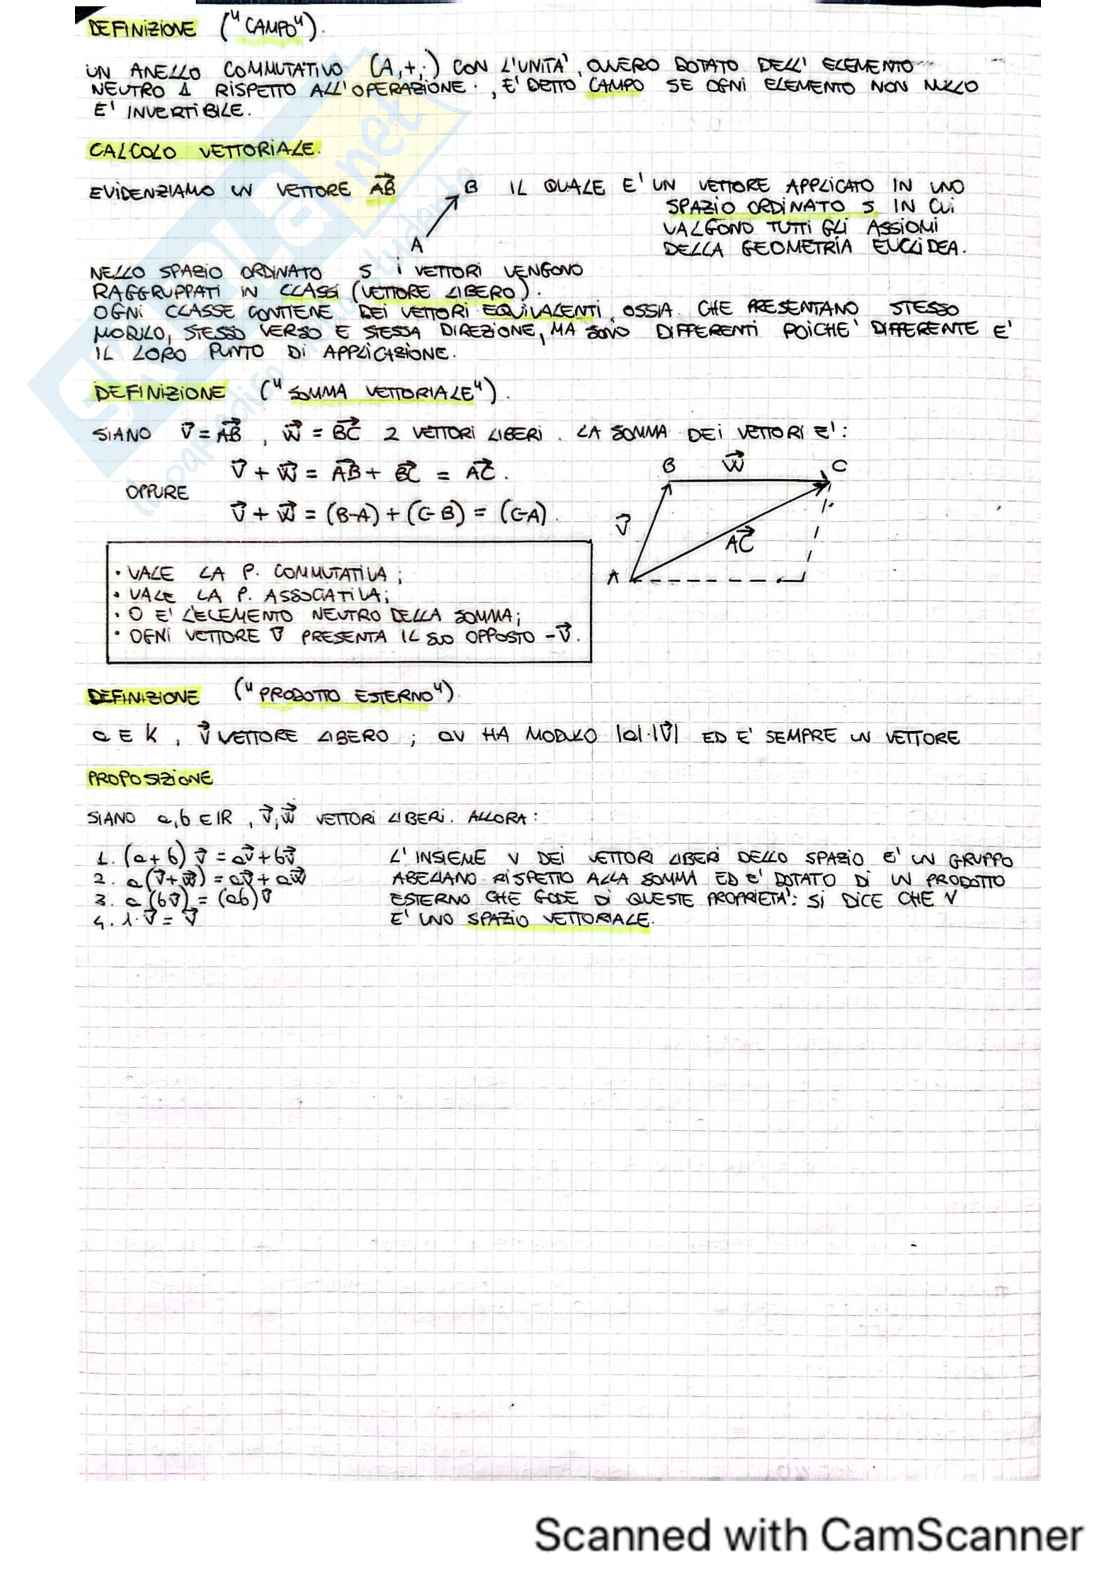 DEFINIZIONE ("CAMPO").
UN ANELLO COMMUTATIVO (A,+,·) CON L'UNITA', OVVERO DOTATO DELL' ELEMENTO
NEUTRO 1 RISPETTO ALL'OPERAZIONE ·, E' DETTO CAMPO SE OGNI ELEMENTO NON NULLO
E' INVERTIBILE.
CALCOLO VETTORIALE.
EVIDENZIAMO UN VETTORE A⃗B⃗ B IL QUALE E' UN VETTORE APPLICATO IN UNO
SPAZIO ORDINATO S IN CUI
VALGONO TUTTI GLI ASSIOMI
A
DELLA GEOMETRIA EUCLIDEA.
NELLO SPAZIO ORDINATO S I VETTORI VENGONO
RAGGRUPPATI IN CLASSI (VETTORE LIBERO).
OGNI CLASSE CONTIENE DEI VETTORI EQUIVALENTI, OSSIA CHE PRESENTANO STESSO
MODULO, STESSO VERSO E STESSA DIREZIONE, MA SONO DIFFERENTI POICHE' DIFFERENTE E'
IL LORO PUNTO DI APPLICAZIONE.
DEFINIZIONE ("SOMMA VETTORIALE").
SIANO v⃗ = A⃗B⃗ , w⃗ = B⃗C⃗ 2 VETTORI LIBERI. LA SOMMA DEI VETTORI E':
v⃗ + w⃗ = A⃗B⃗ + B⃗C⃗ = A⃗C⃗.
OPPURE
v⃗ + w⃗ = (B-A) + (C-B) = (C-A).
B w⃗ C
v⃗
A⃗C⃗
A
· VALE LA P. COMMUTATIVA;
· VALE LA P. ASSOCIATIVA;
· O E' L'ELEMENTO NEUTRO DELLA SOMMA;
· OGNI VETTORE v⃗ PRESENTA IL SUO OPPOSTO -v⃗.
DEFINIZIONE ("PRODOTTO ESTERNO").
a ∈ K , v⃗ VETTORE LIBERO ; av HA MODULO |a|·|v⃗| ED E' SEMPRE UN VETTORE
PROPOSIZIONE
SIANO a,b ∈ IR , v⃗,w⃗ VETTORI LIBERI. ALLORA:
1. (a+b) v⃗ = av⃗ + bv⃗
2. a(v⃗+w⃗) = av⃗ + aw⃗
3. a(bv⃗) = (ab)v⃗
4. 1·v⃗ = v⃗
L'INSIEME V DEI VETTORI LIBERI DELLO SPAZIO E' UN GRUPPO
ABELIANO RISPETTO ALLA SOMMA ED E' DOTATO DI UN PRODOTTO
ESTERNO CHE GODE DI QUESTE PROPRIETA': SI DICE CHE V
E' UNO SPAZIO VETTORIALE.
Scanned with CamScanner